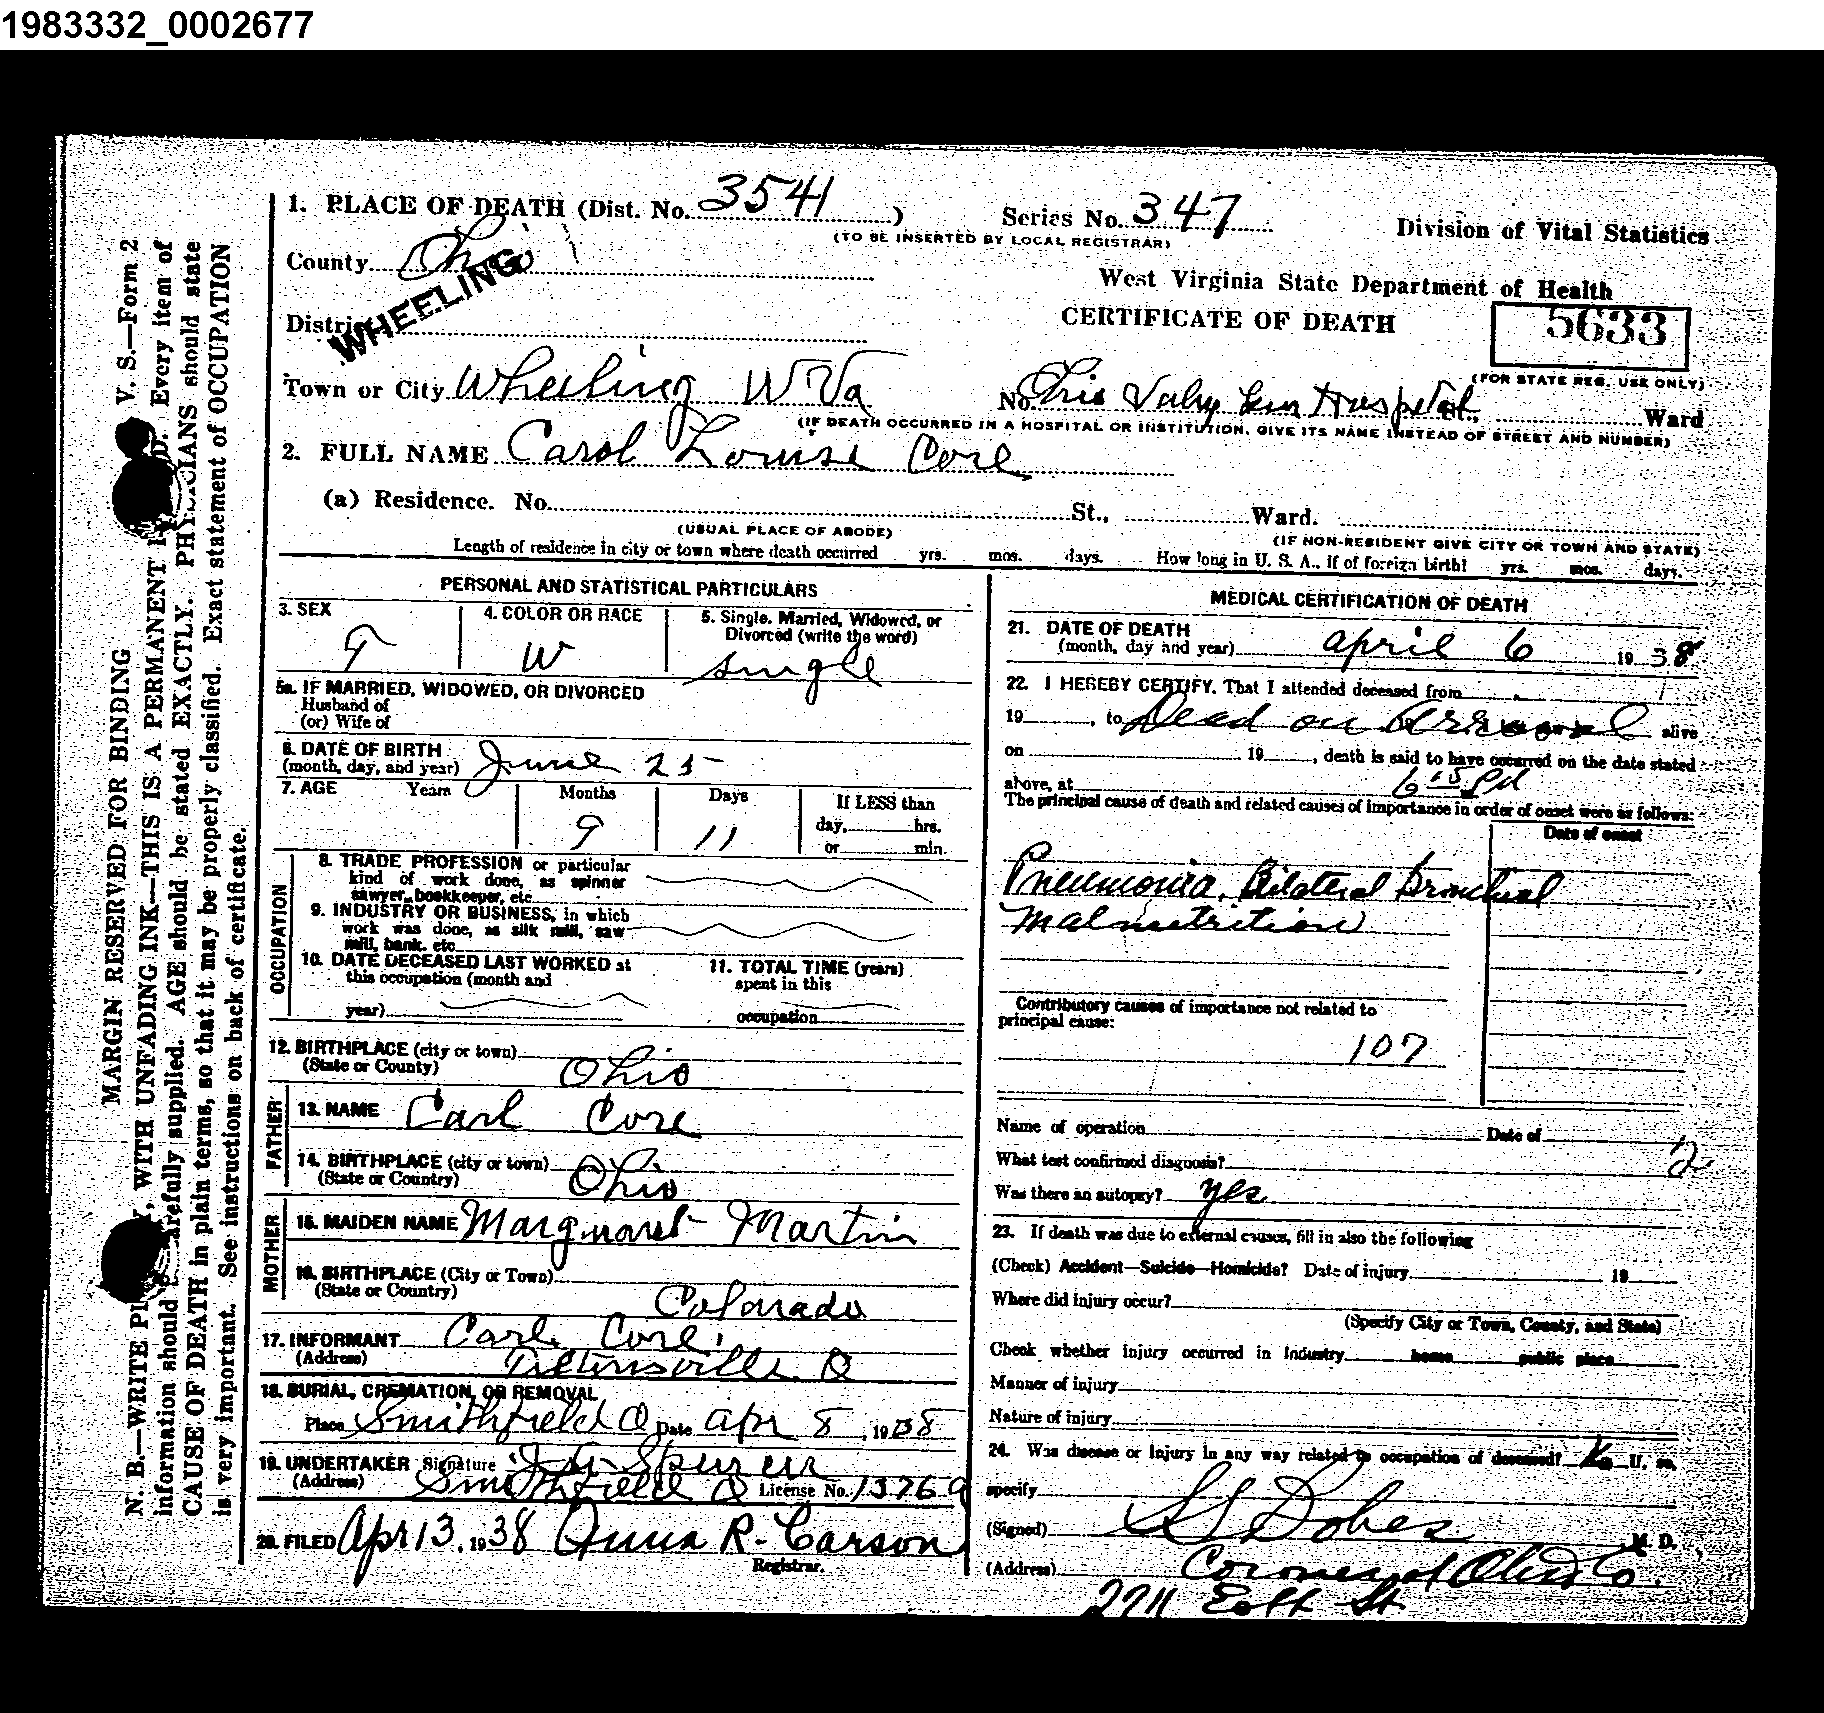 1983332_0002677
1. PLACE OF DEATH (Dist. No. 3541 )
Series No. 347
(TO BE INSERTED BY LOCAL REGISTRAR)
Division of Vital Statistics
County Ohio
WHEELING
West Virginia State Department of Health
CERTIFICATE OF DEATH
5633
(FOR STATE REG. USE ONLY)
District
Town or City Wheeling W Va
No. Ohio Valley Gen Hospital, Ward
(IF DEATH OCCURRED IN A HOSPITAL OR INSTITUTION, GIVE ITS NAME INSTEAD OF STREET AND NUMBER)
2. FULL NAME Carol Louise Core
(a) Residence. No. St., Ward.
(USUAL PLACE OF ABODE)
(IF NON-RESIDENT GIVE CITY OR TOWN AND STATE)
Length of residence in city or town where death occurred yrs. mos. days. How long in U. S. A., if of foreign birth? yrs. mos. days.
PERSONAL AND STATISTICAL PARTICULARS
3. SEX
F
4. COLOR OR RACE
W
5. Single, Married, Widowed, or
Divorced (write the word)
single
5a. IF MARRIED, WIDOWED, OR DIVORCED
Husband of
(or) Wife of
6. DATE OF BIRTH
(month, day, and year) June 25
7. AGE Years Months Days If LESS than
9 11 day, hrs.
or min.
OCCUPATION
8. TRADE PROFESSION or particular
kind of work done, as spinner
sawyer, bookkeeper, etc.
9. INDUSTRY OR BUSINESS, in which
work was done, as silk mill, saw
mill, bank, etc.
10. DATE DECEASED LAST WORKED at
this occupation (month and
year)
11. TOTAL TIME (years)
spent in this
occupation
12. BIRTHPLACE (city or town)
(State or County) Ohio
FATHER
13. NAME Carl Core
14. BIRTHPLACE (city or town)
(State or Country) Ohio
MOTHER
15. MAIDEN NAME Margmaret Martin
16. BIRTHPLACE (City or Town)
(State or Country) Colorado
17. INFORMANT Carl Core
(Address) Tiltonsville O
18. BURIAL, CREMATION, OR REMOVAL
Place Smithfield O Date Apr 8, 1938
19. UNDERTAKER Signature
(Address) Smithfield O License No. 1376 9
20. FILED Apr 13, 1938 Anna R. Carson
Registrar.
MEDICAL CERTIFICATION OF DEATH
21. DATE OF DEATH
(month, day and year) April 6 1938
22. I HEREBY CERTIFY, That I attended deceased from
19 , to Dead on Arrival alive
on 19 , death is said to have occurred on the date stated
above, at 6 15
The principal cause of death and related causes of importance in order of onset were as follows:
Date of onset
Pneumonia, Bilateral Bronchial
Malnutrition
Contributory causes of importance not related to
principal cause:
107
Name of operation Date of
What test confirmed diagnosis? 2
Was there an autopsy? yes
23. If death was due to external causes, fill in also the following
(Check) Accident—Suicide—Homicide? Date of injury 19
Where did injury occur?
(Specify City or Town, County, and State)
Check whether injury occurred in Industry home public place
Manner of injury
Nature of injury
24. Was disease or injury in any way related to occupation of deceased? If so,
specify
(Signed) M. D.
(Address) Coroner of Ohio Co.
2211 Eoff St
MARGIN RESERVED FOR BINDING
V. S.—Form 2
N. B.—WRITE , WITH UNFADING INK—THIS IS A PERMANENT Every item of
information should carefully supplied. AGE should be stated EXACTLY. PHYSICIANS should state
CAUSE OF DEATH in plain terms, so that it may be properly classified. Exact statement of OCCUPATION
is very important. See instructions on back of certificate.